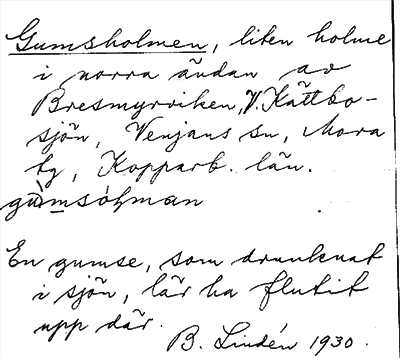 Gumsholmen, liten holme
i norra ändan av
Bresmyrviken, V. Kättbo-
sjön, Venjans sn, Mora
tg, Kopparb. län.
gùmsòḷman
En gumse, som drunknat
i sjön, lär ha flutit
upp där.
B. Lindén 1930.